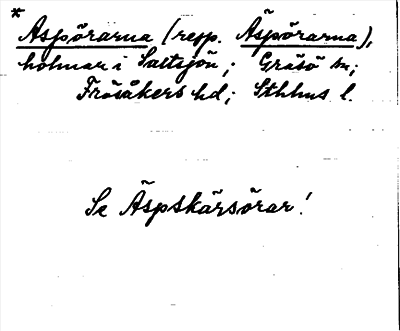 *
Aspörarna (resp. Äspörarna),
holmar i Saltsjön; Gräsö sn;
Frösåkers hd; Sthlms l.
Se Äspskärsörar!